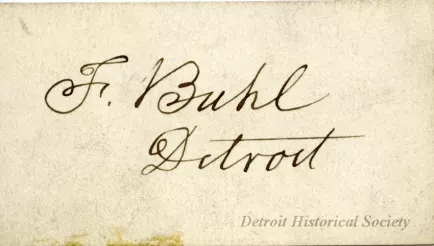 F. Buhl
Detroit
Detroit Historical Society